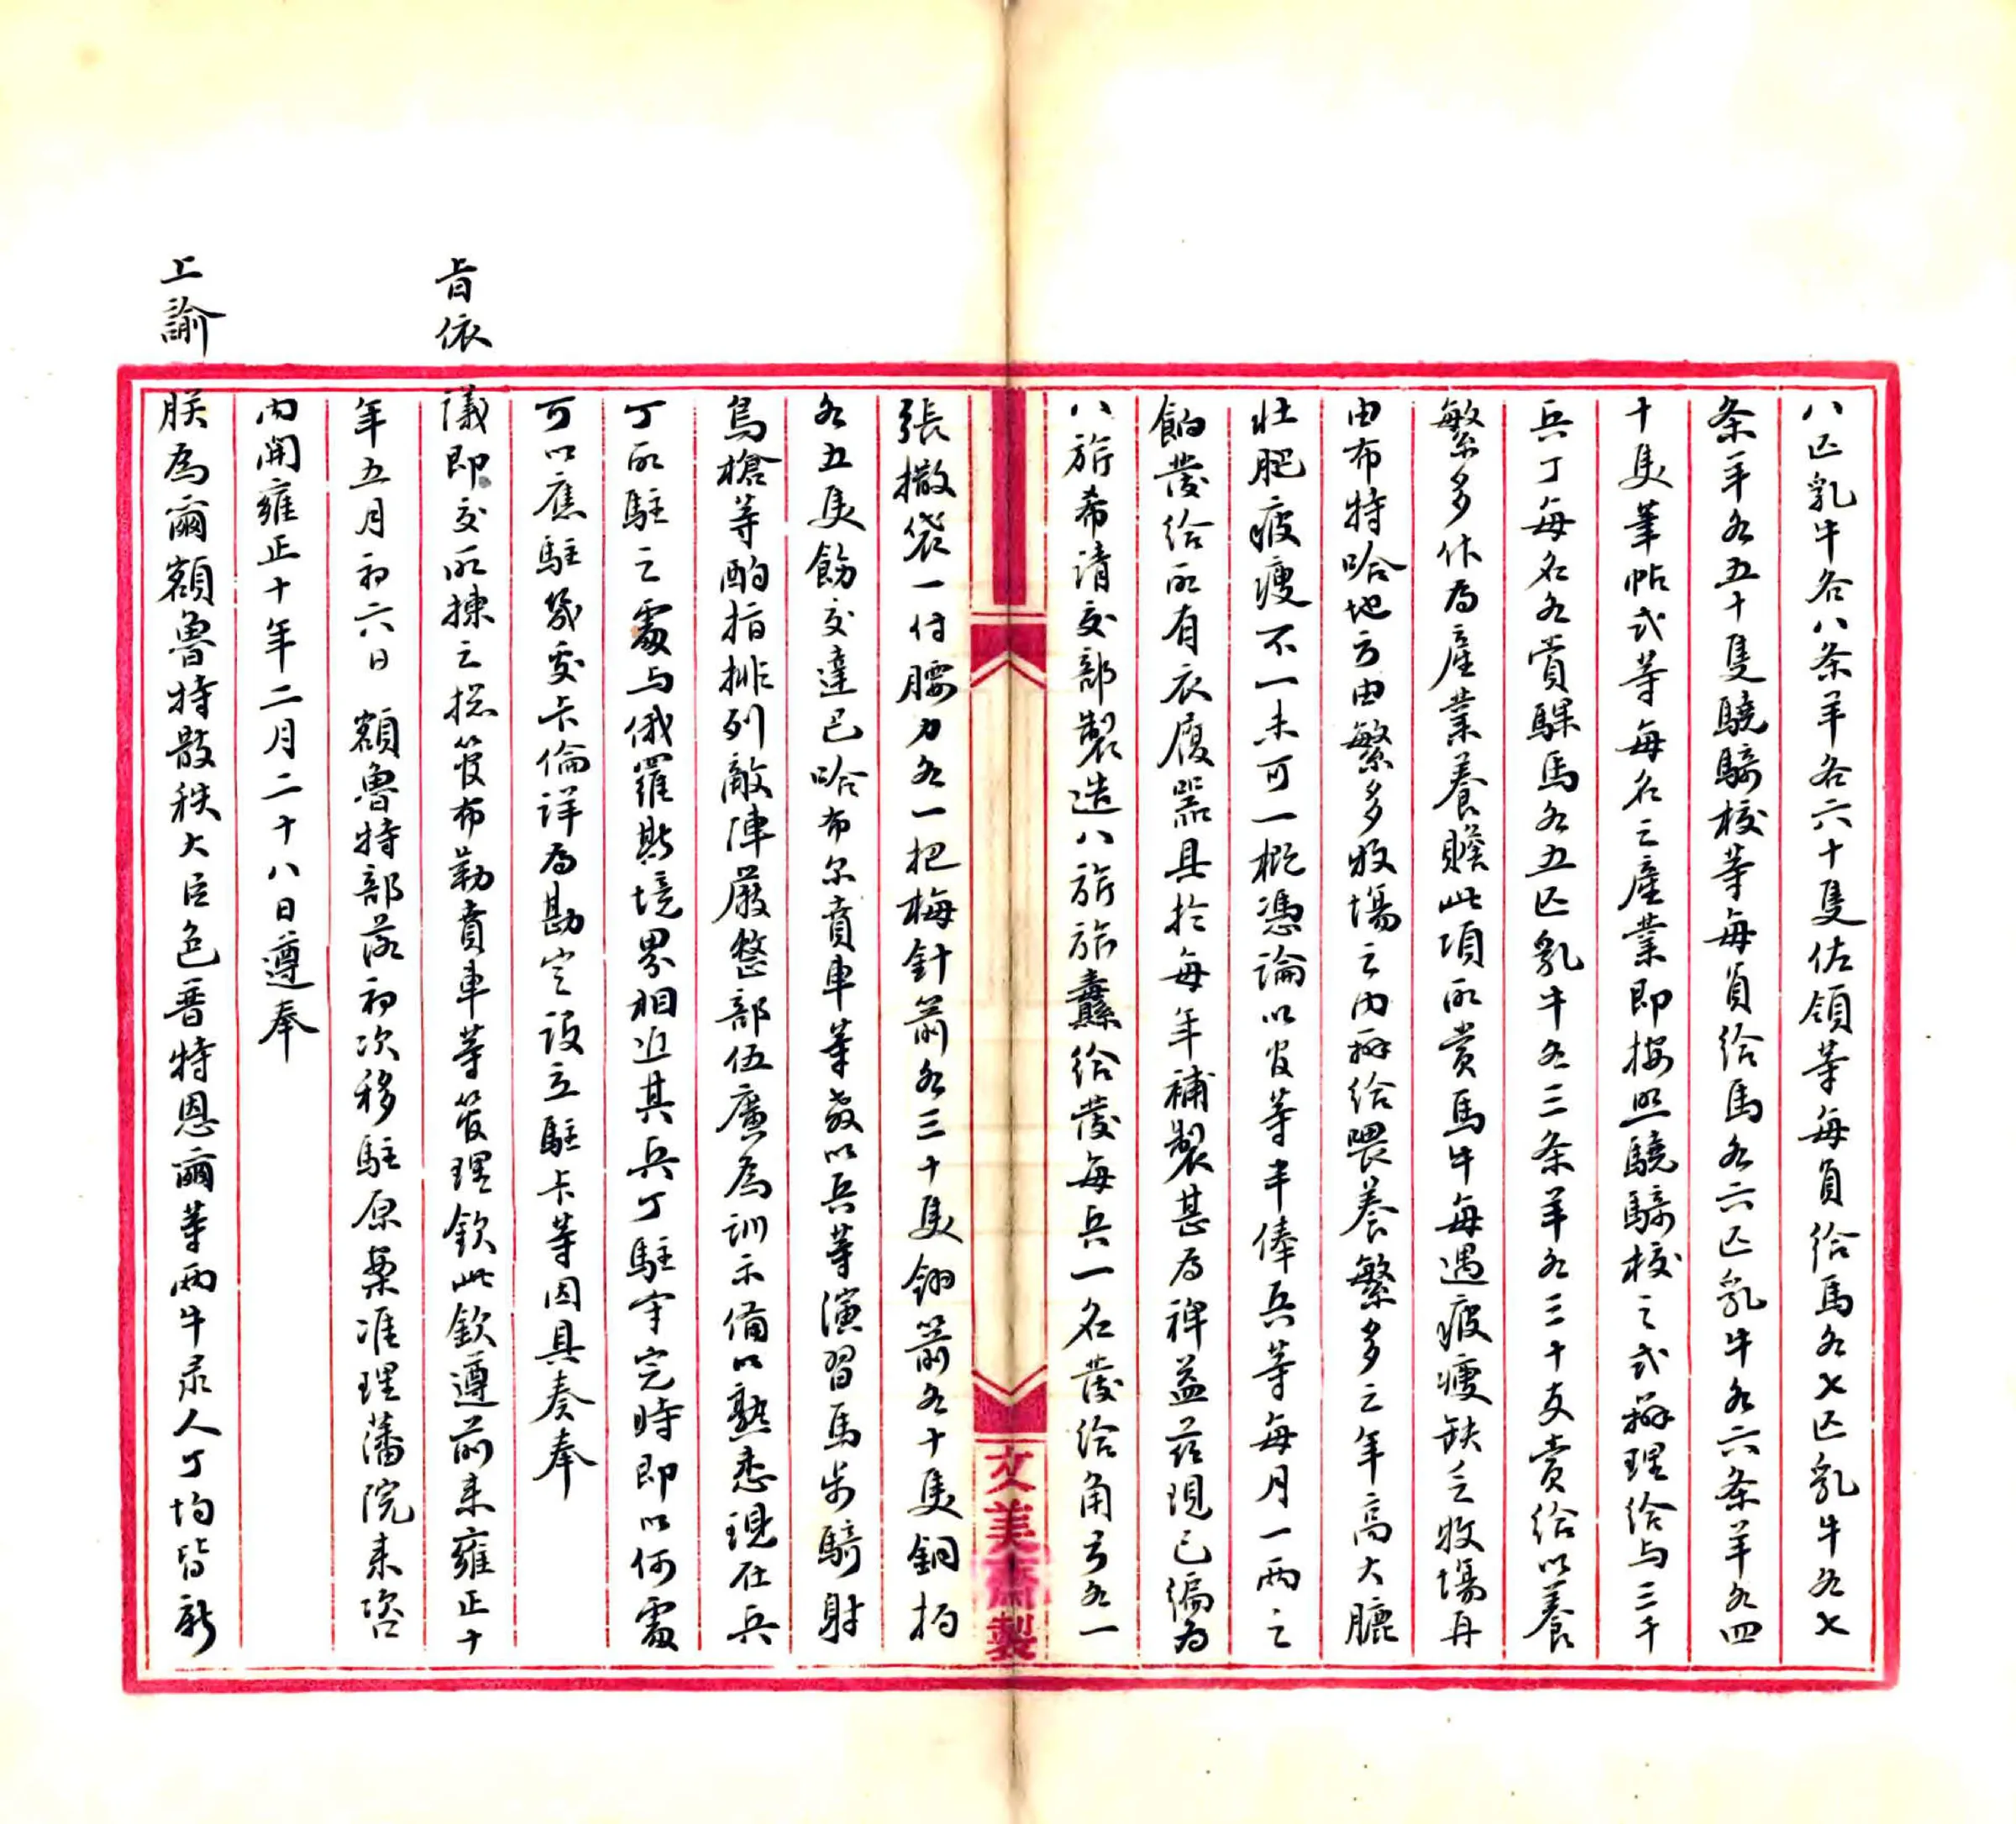 八匹乳牛各八条羊各六十隻佐領等每員给馬各七匹乳牛各七
条羊各五十隻驍騎校等每員给馬各六匹乳牛各六条羊各四
十隻筆帖式等每名之產業即按照驍騎校之式辦理给与三千
兵丁每名各賞騍馬各五匹乳牛各三条羊各三十支賣给以養
繁多作為產業養贍此項所賞馬牛每遇疲瘦缺乏牧場丹
由布特哈地方由繁多牧場之内辦给喂養繁多之年高大膘
壮肥疲瘦不一未可一概憑論以官等半俸兵等每月一两之
餉發给所有衣履器具於每年補製甚為裨益茲現已编為
八旂希请交部製造八旂旂纛给發每兵一名發给角弓各一
文美齋製
張撒袋一付腰刀各一把梅針箭各三十隻鈚箭各十隻銅杓
各五隻飭交達巴哈布尔賁車等教以兵等演習馬步騎射
鳥槍等酌指排列敵陣嚴整部伍廣為訓示備以熟悉現在兵
丁所駐之處与俄羅斯境界相近其兵丁駐守完時即以何處
可以應駐幾處卡倫详為勘定設立駐卡等因具奏奉
旨依議即交所揀之揔管布勒賁車等管理欽此欽遵前来雍正十
年五月初六日 額魯特部落初次移駐原案准理藩院来咨
内開雍正十年二月二十八日遵奉
上諭朕為爾額魯特散秩大臣色普特恩爾等两牛彔人丁均皆新